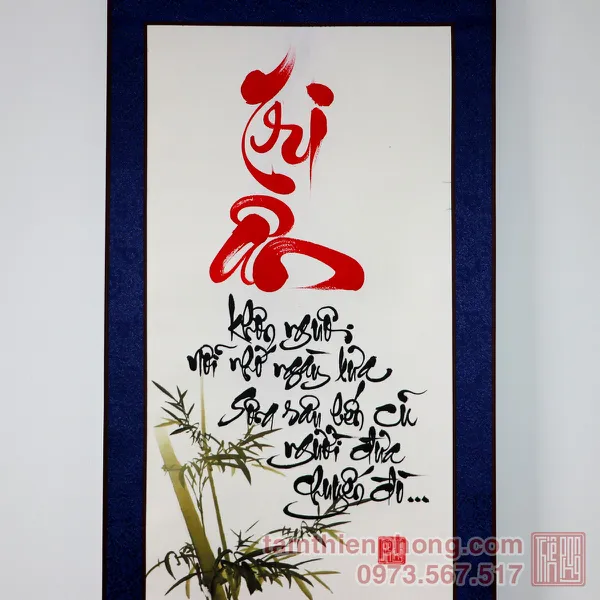 Tri
Ân
Khôn nguôi
nỗi nhớ ngày xưa
Sông sâu bến cũ
người đưa
chuyến đò...
tamthienphong.com
0973.567.517